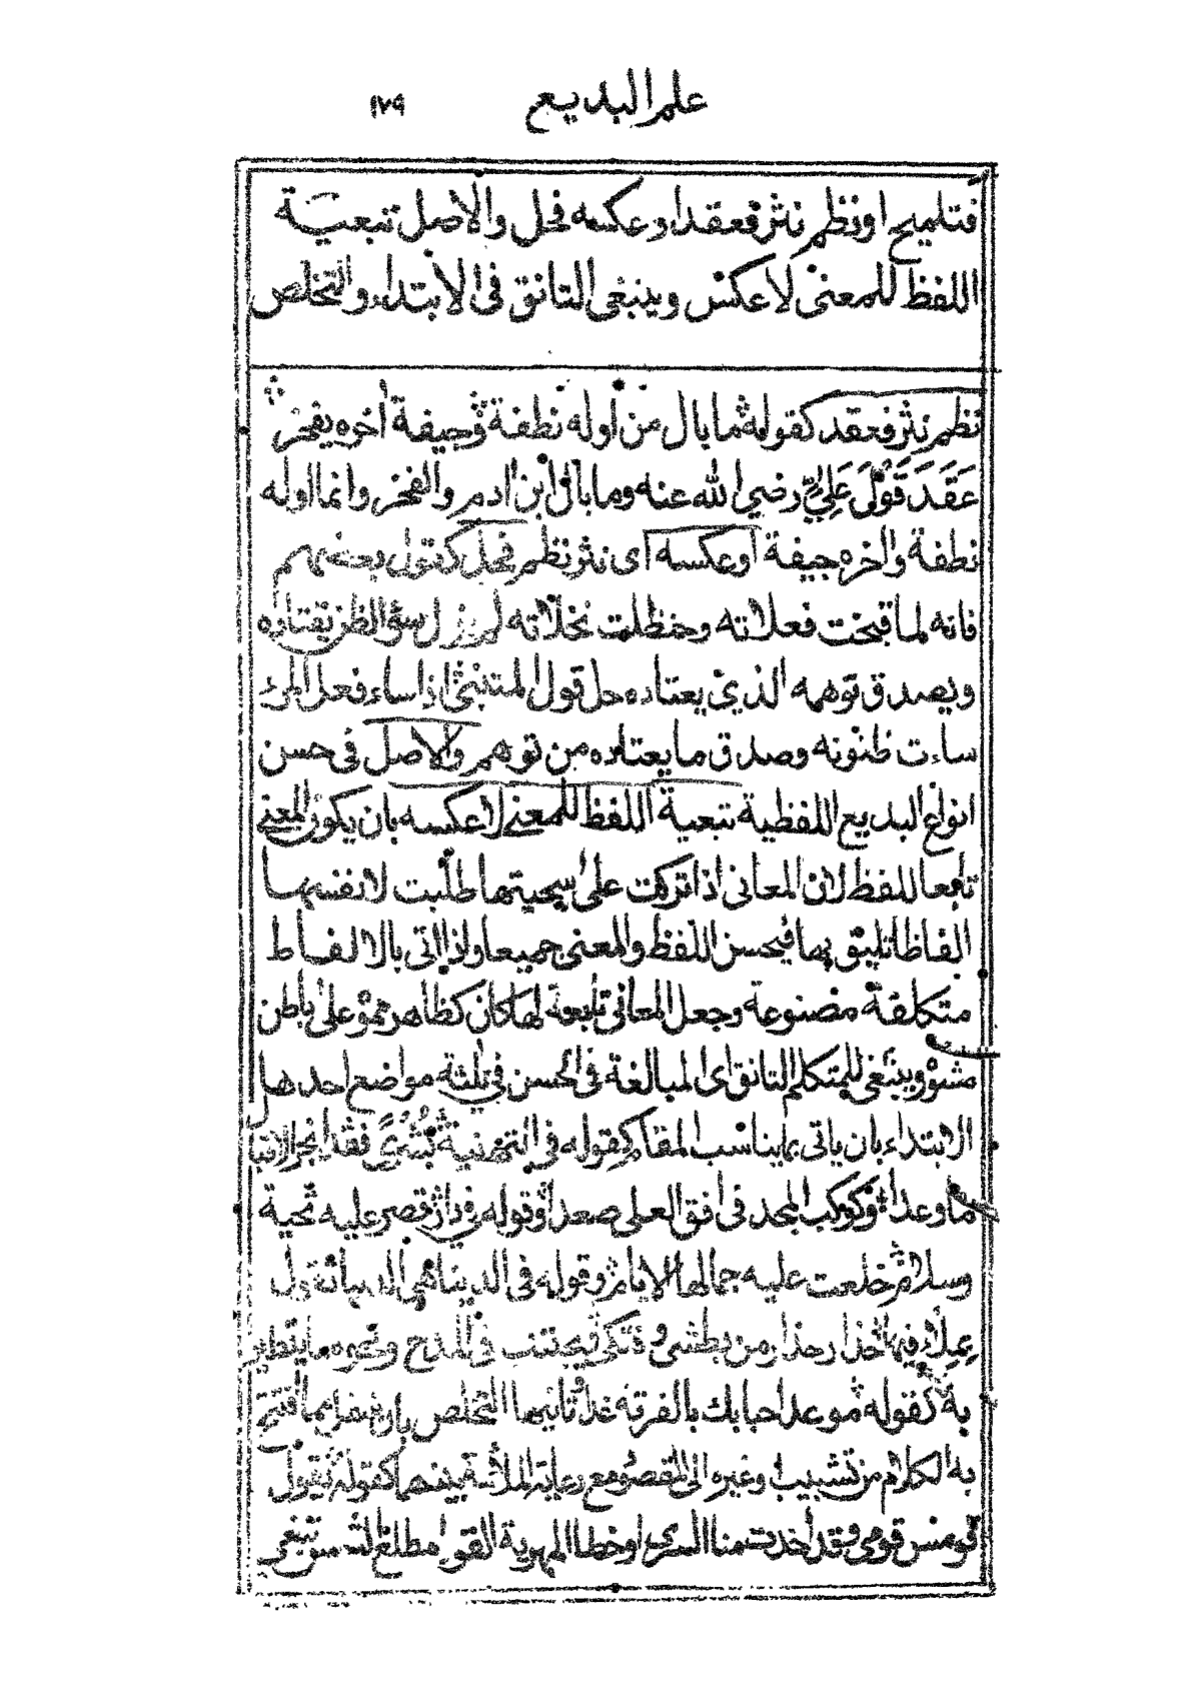 علم البديع ١٧٩
فتلميح او نظم نثر فعقد او عكسه فحل والاصل تبعية
اللفظ للمعنى لا عكس وينبغى التانق فى الابتداء والتخلص
نظم نثر فعقد كقوله ما بال من اوله نطفة وجيفة اخره يفخر
عَقَدَ قَوْلَ عَلِيٍّ رضي الله عنه وما بال ابن ادم والفخر وانما اوله
نطفة واخره جيفة او عكسه اى نثر نظم فحل كقول بعضهم
فانه لما قبحت فعلاته وحنظلت نخلاته لم يزل سؤ الظن يقتاده
ويصدق توهمه الذي يعتاده حل قول المتنبى اذا ساء فعل المرء
ساءت ظنونه وصدق ما يعتاده من توهم والاصل فى حسن
انواع البديع اللفظية تبعية اللفظ للمعنى لا عكسه بان يكون المعنى
تابعا للفظ لان المعانى اذا تركت على سجيتها طلبت لانفسها
الفاظا تليق بها فيحسن اللفظ والمعنى جميعا واذا اتى بالالفاظ
متكلفة مصنوعة وجعل المعانى تابعة لها كان كظاهر مموه على باطن
مشوه وينبغى للمتكلم التانق اى المبالغة فى الحسن فى ثلثة مواضع احدها
الابتداء بان ياتى بما يناسب المقام كقوله فى التهنية بُشْرًى فقد انجز الاقبال
ما وعدا وكوكب المجد فى افق العلى صعدا وقوله فى دار قصر عليه تحية
وسلام خلعت عليه جمالها الايام وقوله فى الدنيا هى الدنيا تقول
بملاء فيها حذار حذار من بطشى وفتكى ويجتنب فى المدح ونحوه ما يتطير
به كقوله موعد احبابك بالفرقة غد وثانيها التخلص بما افتتح
به الكلام من تشبيب وغيره الى المقصود مع رعاية الملائمة بينهما كقوله تقول
قومس قومى وقد اخذت منا السرى وخطا المهرية القود امطلع الشمس تبغى